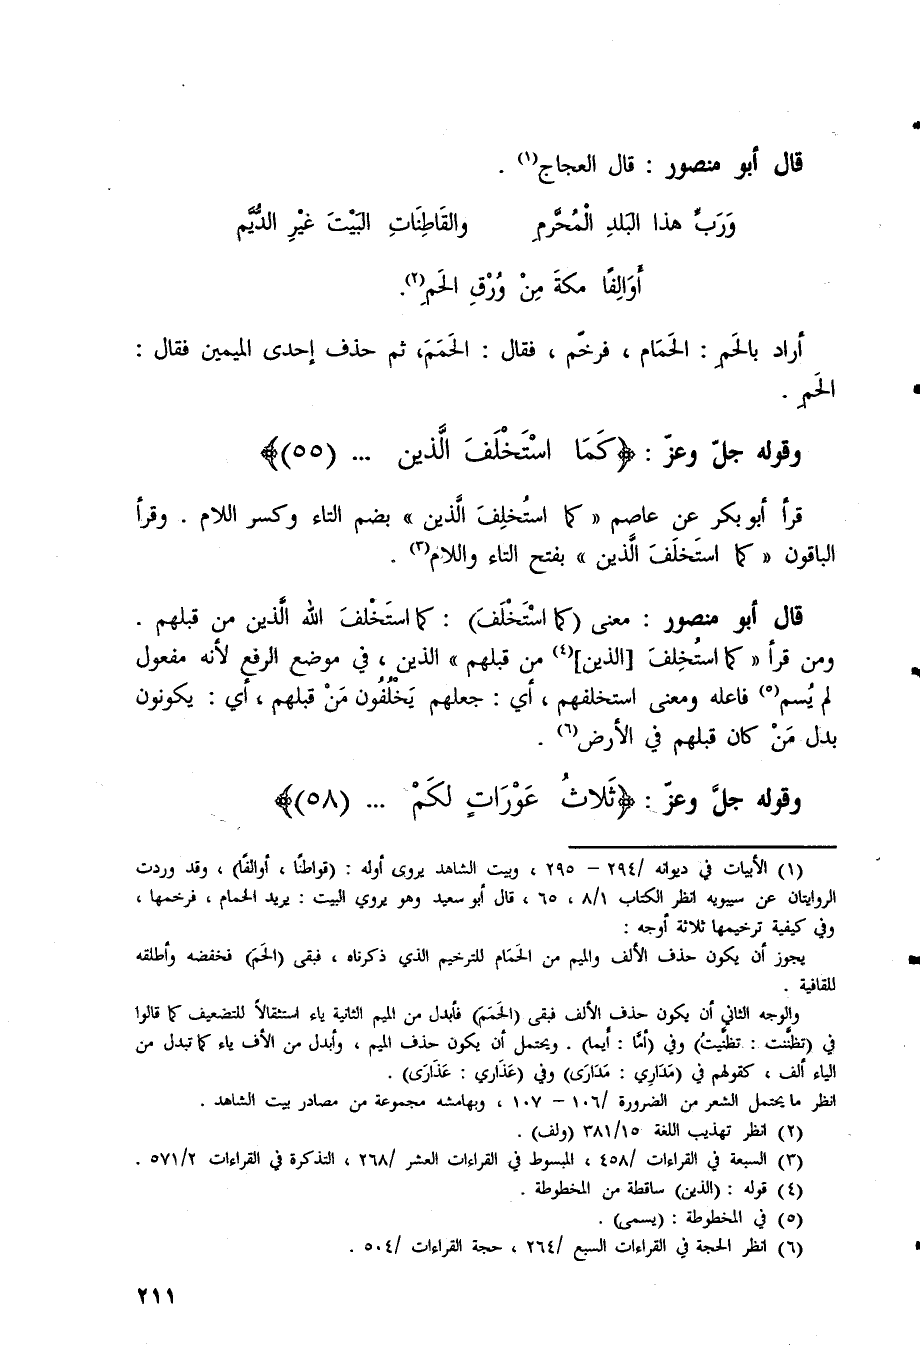 قال أبو منصور : قال العجاج(١) .
وَرَبِّ هذا البَلدِ الْمُحَرَّمِ والقَاطِنَاتِ البَيْتَ غَيْرِ الدُّيَّم
أَوَالِفًا مكةَ مِنْ وُرْقِ الحَمِ(٢).
أراد بالحَمِ : الحَمَام ، فرخّم ، فقال : الحَمَمَ، ثم حذف إحدى الميمين فقال :
الحَمِ .
وقوله جلّ وعزّ : ﴿كَمَا اسْتَخْلَفَ الَّذين ... (٥٥)﴾
قرأ أبو بكر عن عاصم « كما استُخلِفَ الَّذين » بضم التاء وكسر اللام . وقرأ
الباقون « كما استَخلَفَ الَّذين » بفتح التاء واللام(٣) .
قال أبو منصور : معنى (كما اسْتَخْلَفَ) : كما استَخْلفَ الله الَّذين من قبلهم .
ومن قرأ « كما استُخِلفَ [الذين](٤) من قبلهم » الذين ، في موضع الرفع لأنه مفعول
لم يُسم(٥) فاعله ومعنى استخلفهم ، أي : جعلهم يَخْلُفُون مَنْ قبلهم ، أي : يكونون
بدل مَنْ كان قبلهم في الأرض(٦) .
وقوله جلَّ وعزّ : ﴿ثَلاثُ عَوْرَاتٍ لكَمْ ... (٥٨)﴾
(١) الأبيات في ديوانه /٢٩٤ – ٢٩٥ ، وبيت الشاهد يروى أوله : (قواطنًا ، أوالفًا) ، وقد وردت
الروايتان عن سيبويه انظر الكتاب ٨/١ ، ٦٥ ، قال أبو سعيد وهو يروي البيت : يريد الحمام ، فرخمها ،
وفي كيفية ترخيمها ثلاثة أوجه :
يجوز أن يكون حذف الألف والميم من الحَمَام للترخيم الذي ذكرناه ، فبقى (الحَمَ) فخفضه وأطلقه
للقافية .
والوجه الثاني أن يكون حذف الألف فبقى (الحَمَمَ) فأبدل من الميم الثانية ياء استثقالاً للتضعيف كما قالوا
في (تظنَّنت : تظنَّيتُ) وفي (أمَّا : أيما) . ويحتمل أن يكون حذف الميم ، وأبدل من الأف ياء كما تبدل من
الياء ألف ، كقولهم في (مَدَارِي : مَدَارَى) وفي (عَذَاري : عَذَارَى) .
انظر ما يحتمل الشعر من الضرورة /١٠٦ – ١٠٧ ، وبهامشه مجموعة من مصادر بيت الشاهد .
(٢) انظر تهذيب اللغة ٣٨١/١٥ (ولف) .
(٣) السبعة في القراءات /٤٥٨ ، المبسوط في القراءات العشر /٢٦٨ ، التذكرة في القراءات ٥٧١/٢ .
(٤) قوله : (الذين) ساقطة من المخطوطة .
(٥) في المخطوطة : (يسمى) .
(٦) انظر الحجة في القراءات السبع /٢٦٤ ، حجة القراءات /٥٠٤ .
٢١١